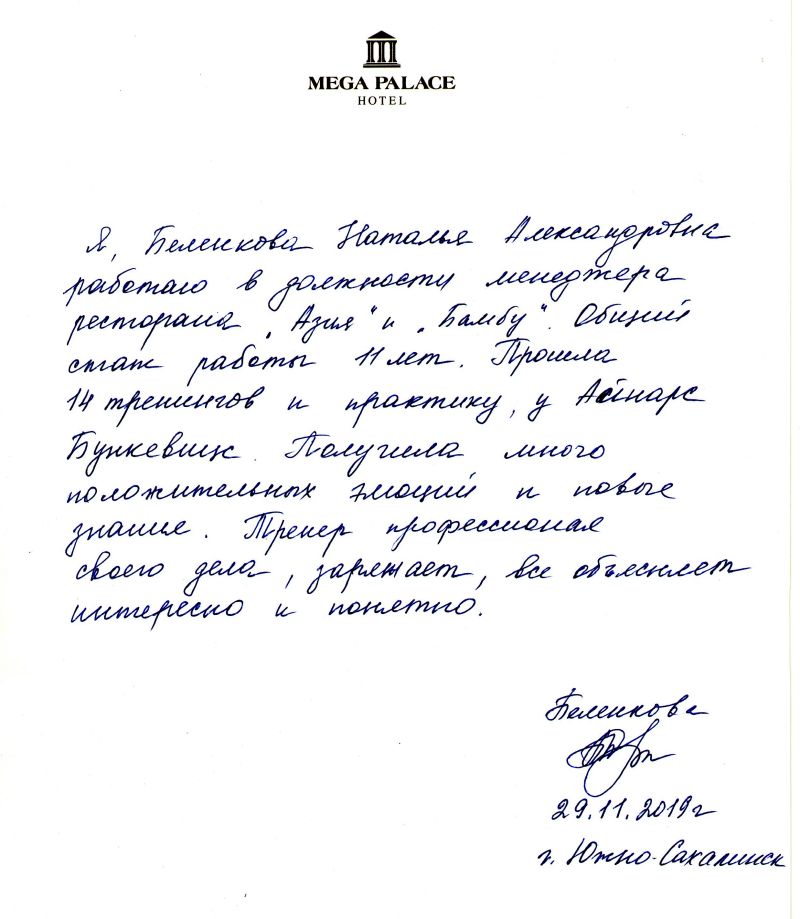 MEGA PALACE
HOTEL
Я, Беленкова Наталья Александровна
работаю в должности менеджера
ресторана „Азия" и „Бамбу". Общий
стаж работы 11 лет. Прошла
14 тренингов и практику, у Айнарс
Бункевищс. Получила много
положительных эмоций и новые
знание. Тренер профессионал
своего дела, заряжает, все объясняет
интересно и понятно.
Беленкова
29.11.2019г
г. Южно-Сахалинск